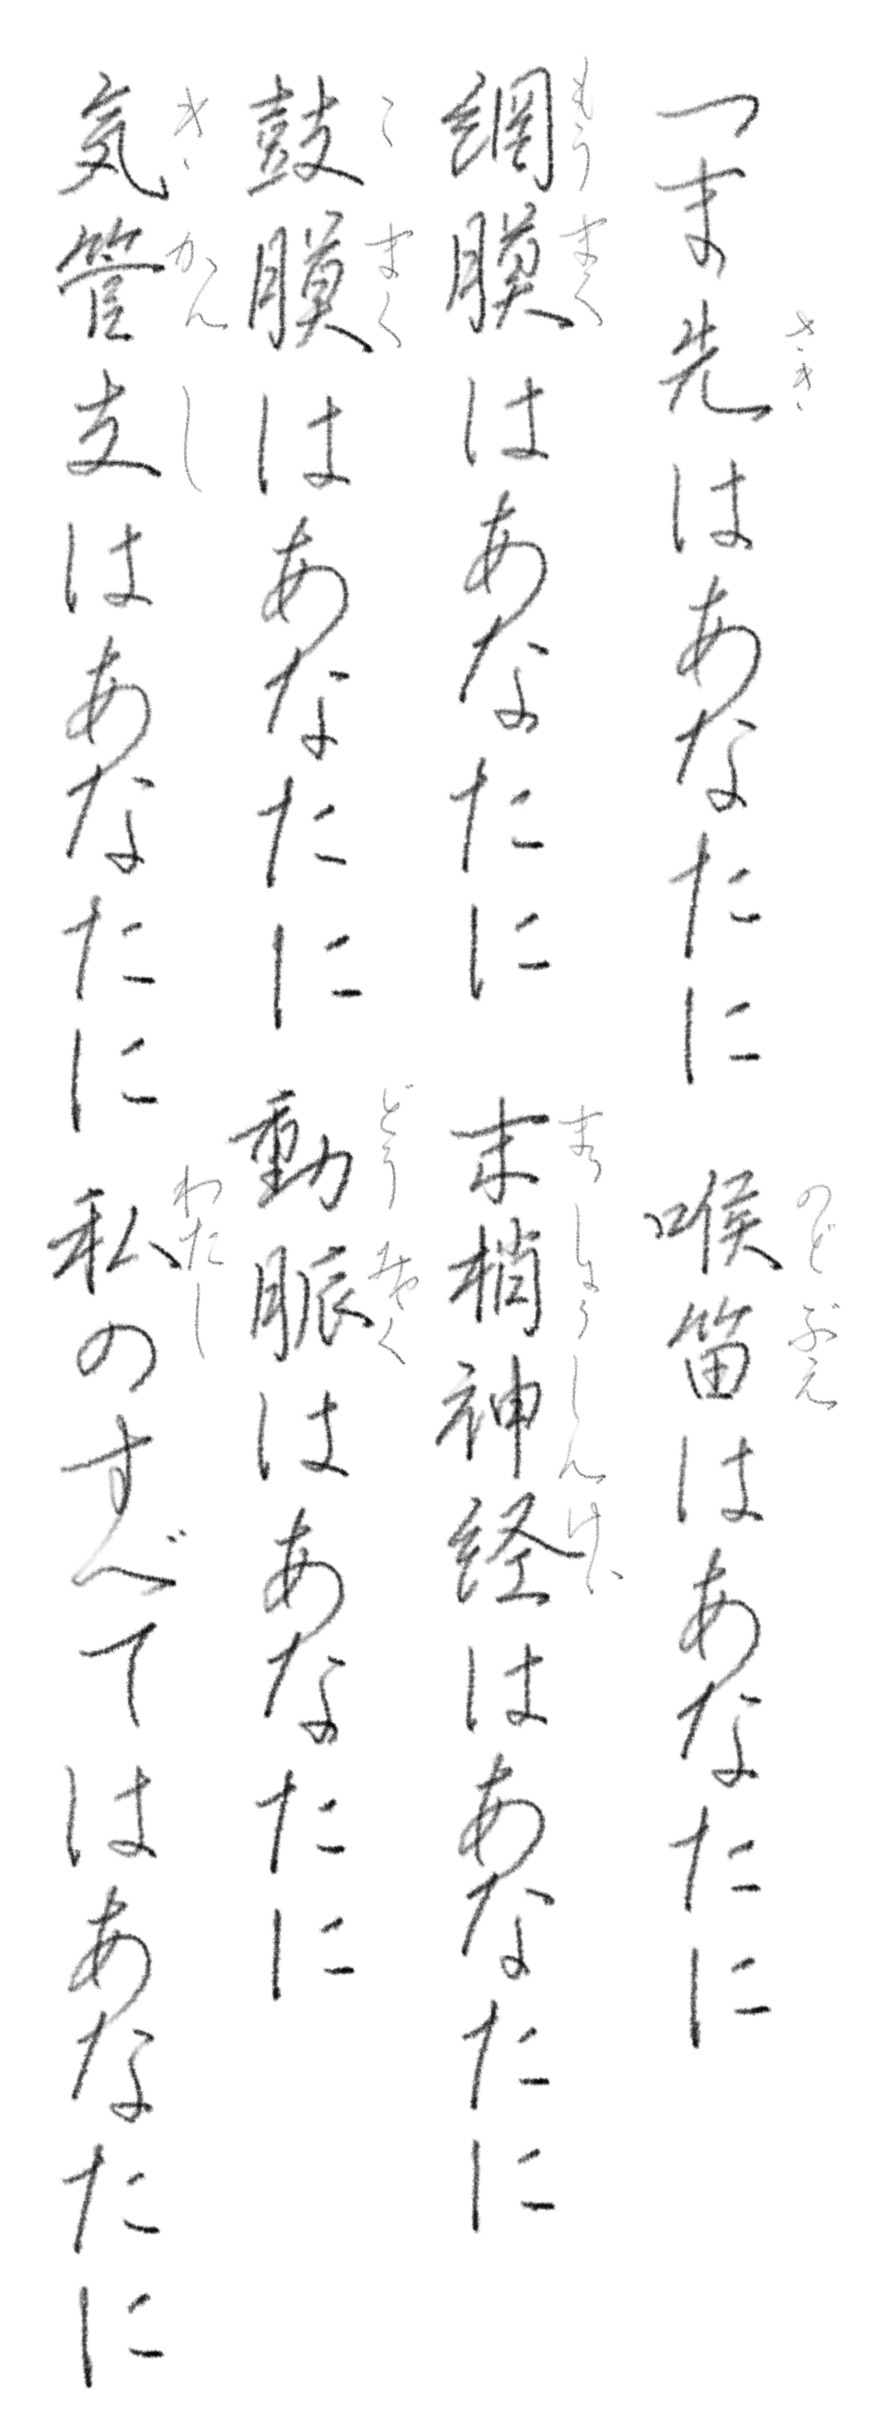 つま先はあなたに 喉笛はあなたに
網膜はあなたに 末梢神経はあなたに
鼓膜はあなたに 動脈はあなたに
気管支はあなたに 私のすべてはあなたに
さき のどぶえ
もうまく まっしょうしんけい
こまく どうみゃく
きかんし わたし